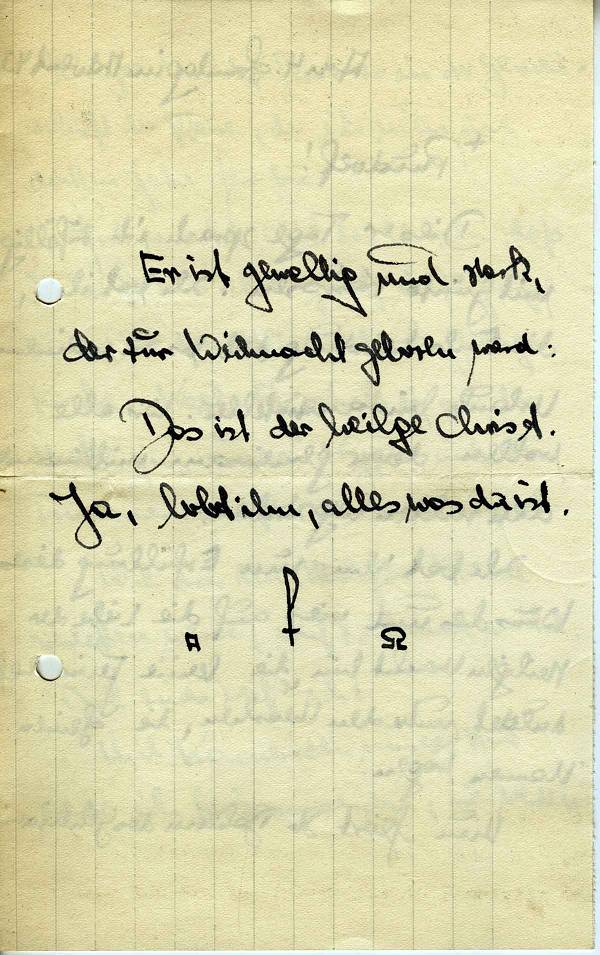 Er ist gewaltig und stark,
der zur Weihnacht geboren ward:
Das ist der heilge Christ.
Ja, lobt ihn, alles was da ist.
A Ω